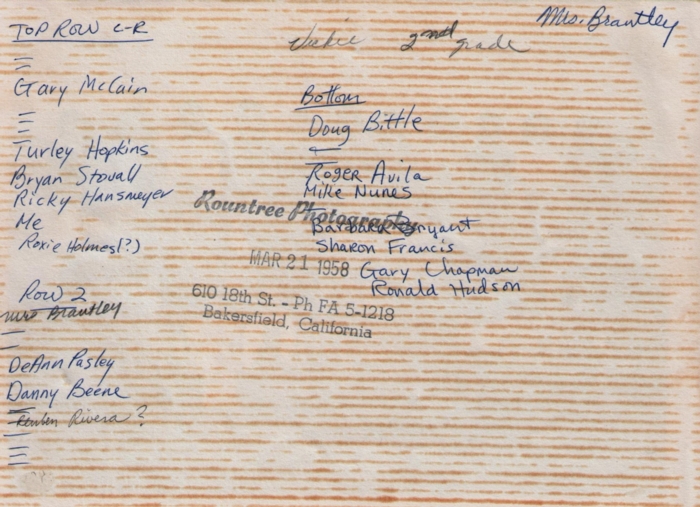 Mrs. Brantley
Vickie 2nd grade
TOP ROW L-R
Gary McCain
Turley Hopkins
Bryan Stovall
Ricky Hansmeyer
Me
Roxie Holmes(?)
Row 2
Mrs Brantley
DeAnn Pasley
Danny Beene
Reuben Rivera?
Bottom
Doug Bittle
Roger Avila
Mike Nunes
Barbara Bryant
Sharon Francis
Gary Chapman
Ronald Hudson
Rountree Photography
MAR 21 1958
610 18th St. - Ph FA 5-1218
Bakersfield, California